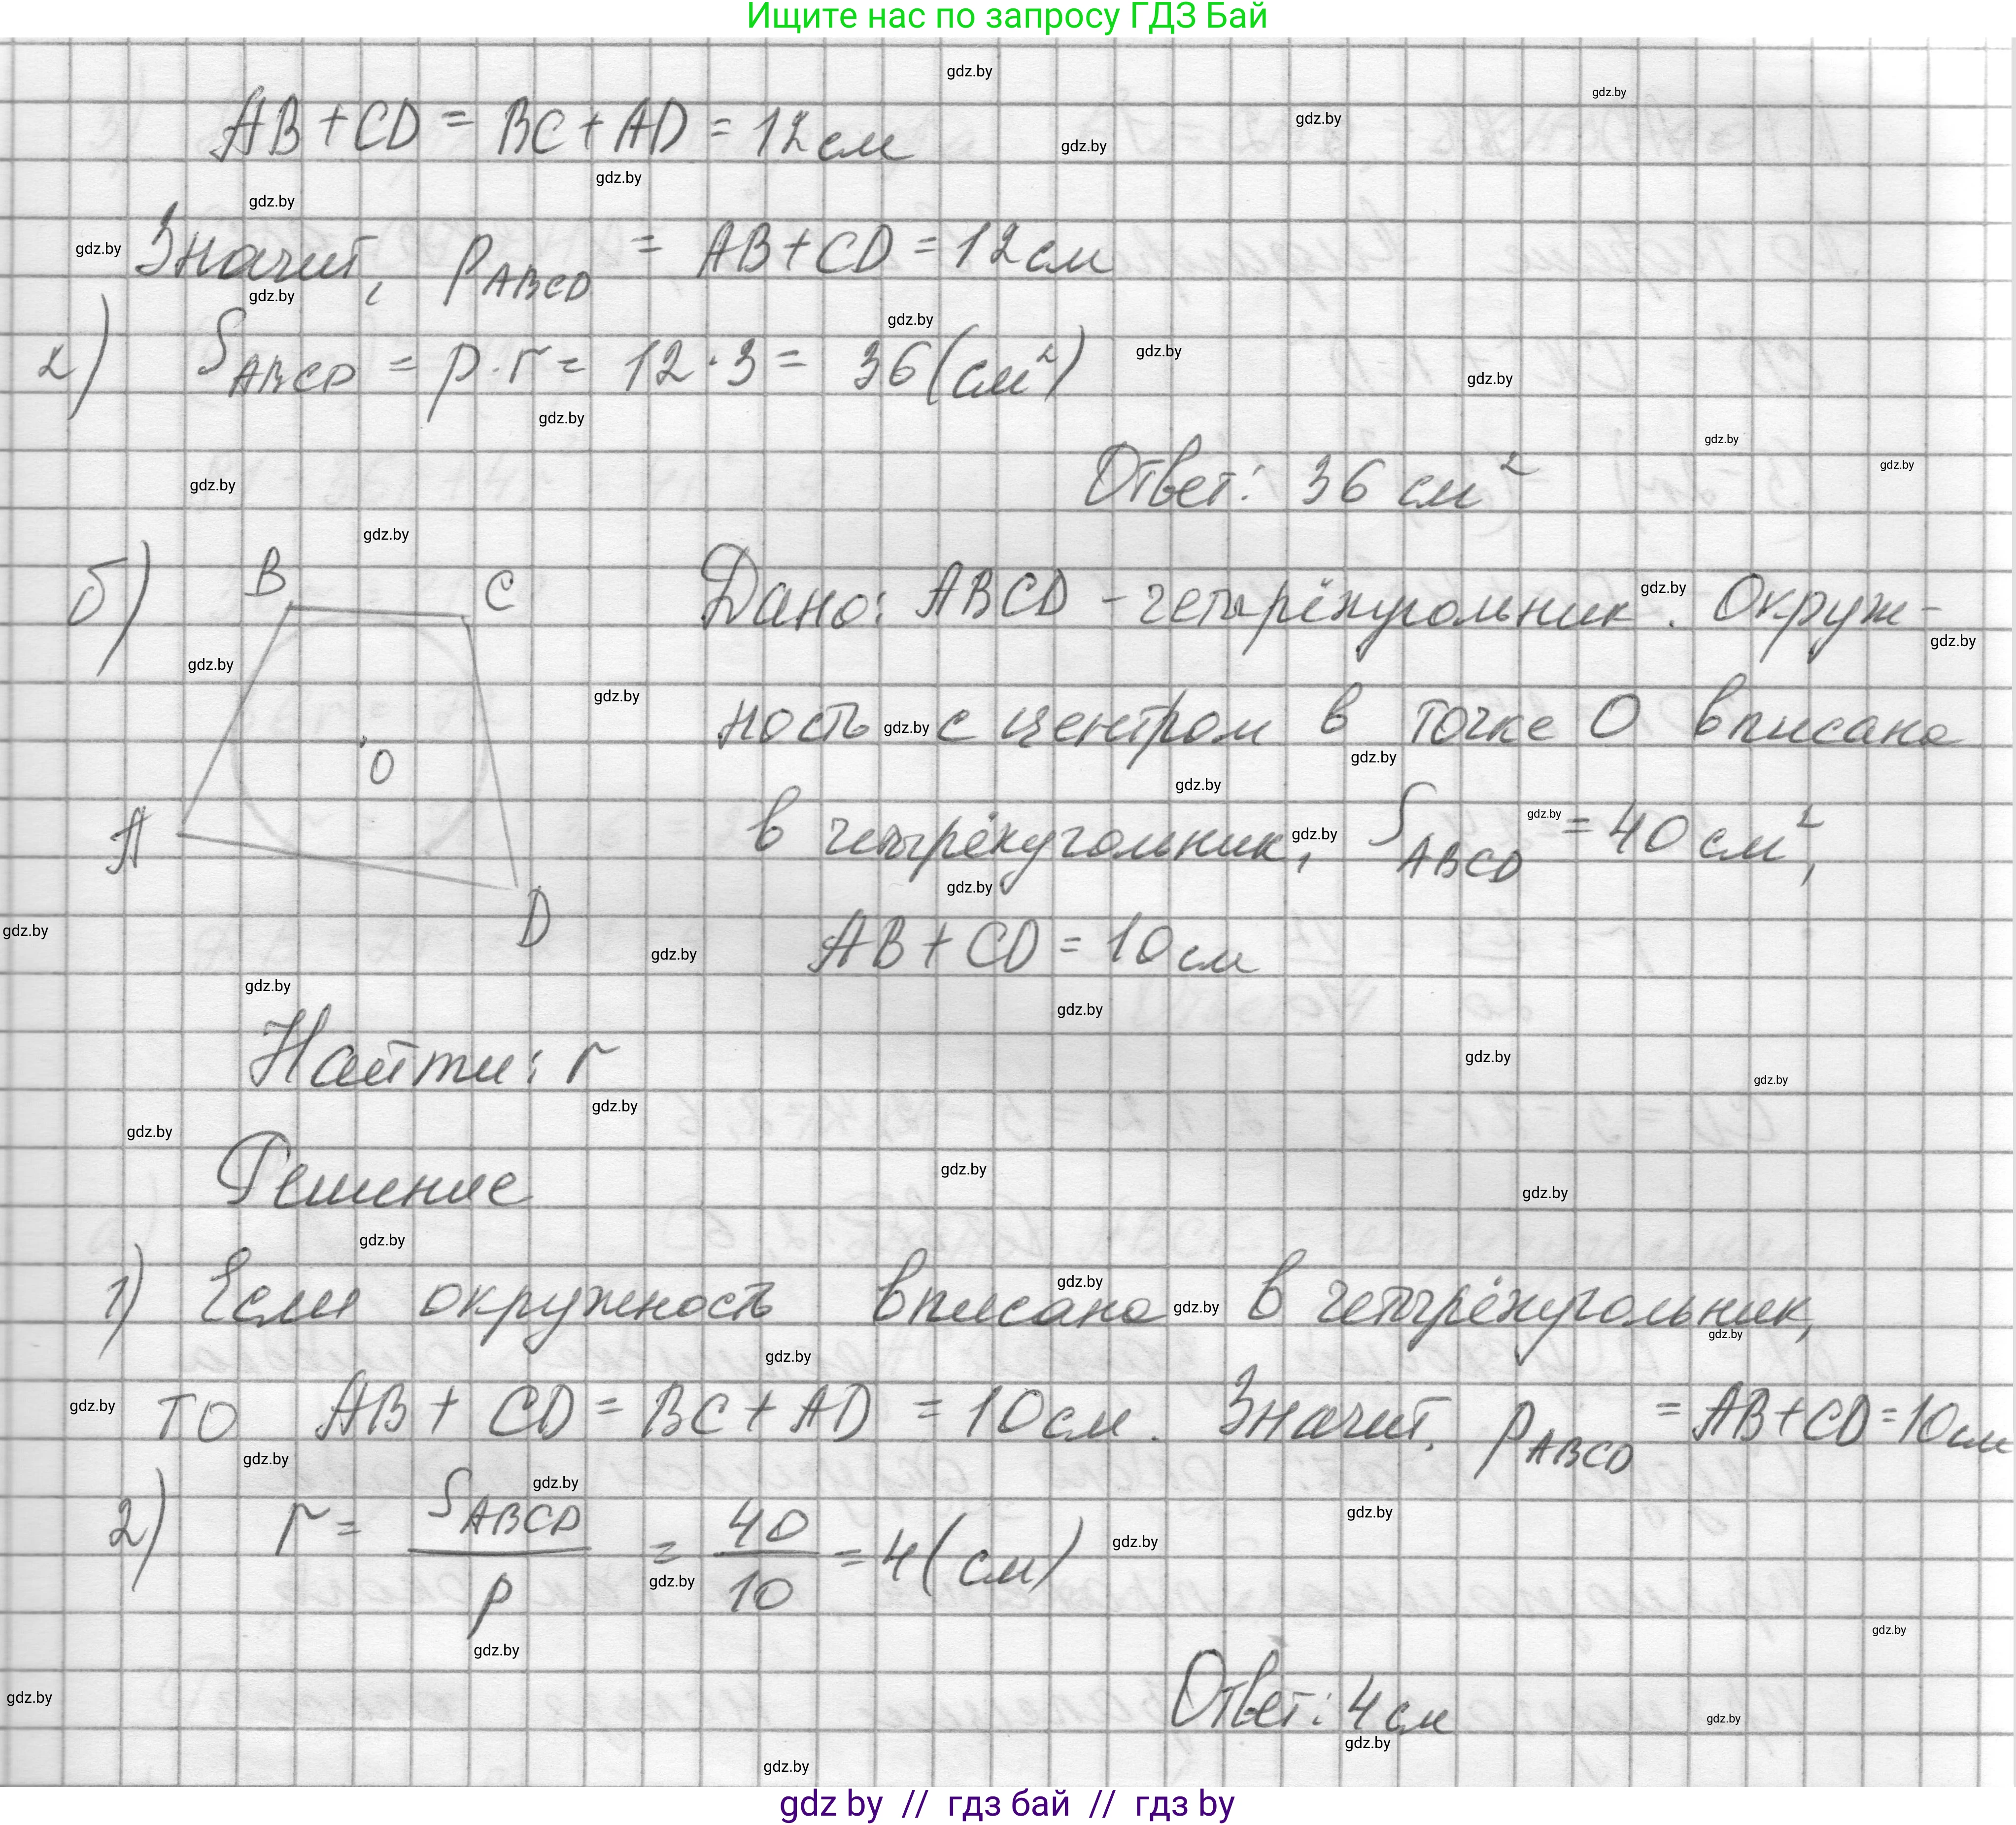 Ищите нас по запросу ГДЗ Бай
AB + CD = BC + AD = 12 см
Значит, p_ABCD = AB + CD = 12 см
2) S_ABCD = p · r = 12 · 3 = 36 (см²)
Ответ: 36 см²
б) B C Дано: ABCD – четырёхугольник. Окруж-
ность с центром в точке O вписана
O
в четырёхугольник, S_ABCD = 40 см²,
A
D
AB + CD = 10 см
Найти: r
Решение
1) Если окружность вписана в четырёхугольник,
то AB + CD = BC + AD = 10 см. Значит, p_ABCD = AB + CD = 10 см
2) r = S_ABCD / p = 40 / 10 = 4 (см)
Ответ: 4 см
gdz.by
gdz by // гдз бай // гдз by